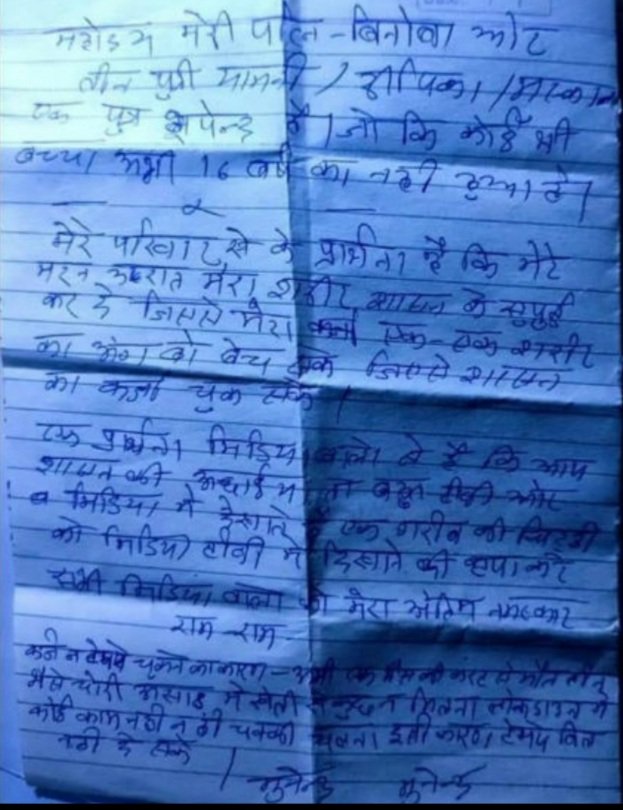 महोदय मेरी पत्नि - विनोबा और
तीन पुत्री / दीपिका /
एक पुत्र है। जो कि कोई भी
बच्चा अभी 16 वर्ष का नही हुआ है।
मेरे परिवार से के प्रार्थना है कि मेरे
मरने उपरांत मेरा शरीर शासन के सुपुर्द
कर दे जिससे मेरा एक-एक शरीर
का अंग को बेच सके जिससे शासन
का कर्जा चुक सके।
एक प्रार्थना मिडिया वालो से है कि आप
शासन की अच्छाईया तो बहुत टीवी और
व मिडिया मे देखाते है एक गरीब की
को मिडिया टीवी मे दिखाने की कृपा करे
सभी मिडिया वालो को मेरा अंतिम नमस्कार
राम-राम
कर्ज न चुकने का कारण - एक भैंस की करंट से मौत तीन
भैंस चोरी आसाढ मे खेती मे कुछ न मिलना लोकडाउन मे
कोई काम नही न ही चक्की चलना इसी कारण बिल
नही दे सके।
मुनेन्द्र मुनेन्द्र